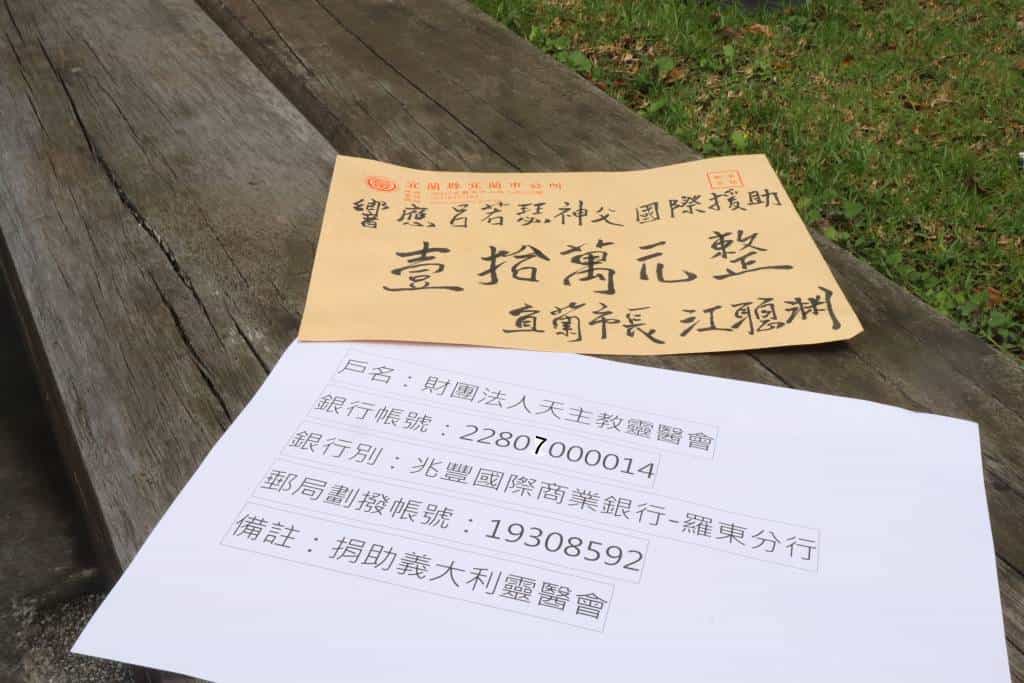 宜蘭縣宜蘭市公所
響應呂若瑟神父國際援助
壹拾萬元整
宜蘭市長 江聰淵
戶名：財團法人天主教靈醫會
銀行帳號：22807000014
銀行別：兆豐國際商業銀行-羅東分行
郵局劃撥帳號：19308592
備註：捐助義大利靈醫會